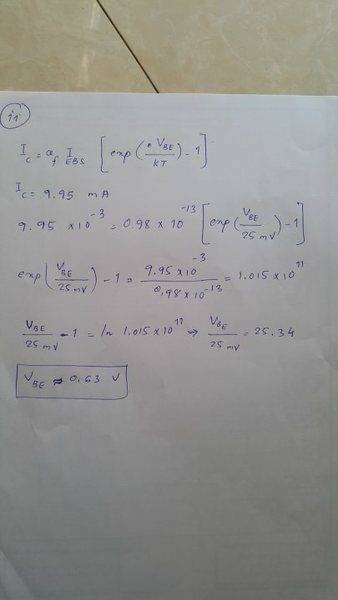 ii
I_C = α_f I_EBS [exp(e V_BE / KT) - 1]
I_C = 9.95 mA
9.95 × 10^-3 = 0.98 × 10^-13 [exp(V_BE / 25 mV) - 1]
exp(V_BE / 25 mV) - 1 = 9.95 × 10^-3 / 0.98 × 10^-13 = 1.015 × 10^11
V_BE / 25 mV - 1 = ln 1.015 × 10^11 → V_BE / 25 mV = 25.34
V_BE ≈ 0.63 V